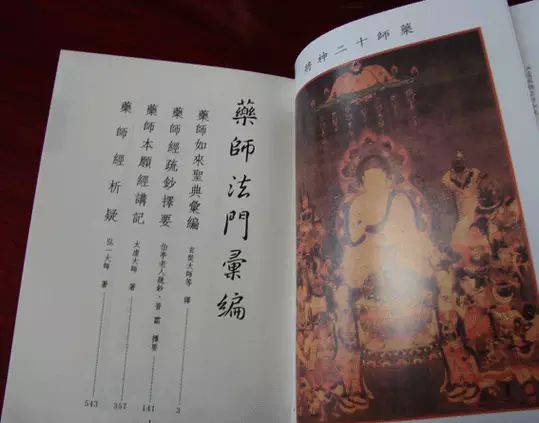 藥師十二神將
藥師法門彙編
藥師如來聖典彙編 玄奘大師等 譯 3
藥師經疏鈔擇要 伯亭老人疏鈔、普霦 擇要 141
藥師本願經講記 太虛大師 著 357
藥師經析疑 弘一大師 著 543